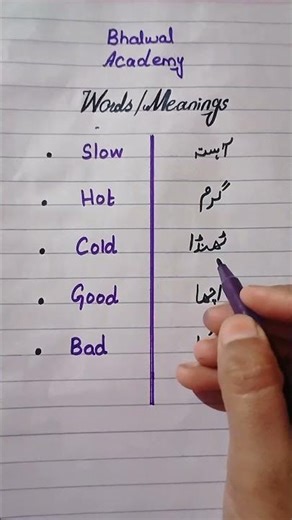 Bhalwal
Academy
Words/Meanings
• Slow آہستہ
• Hot گرم
• Cold ٹھنڈا
• Good اچھا
• Bad